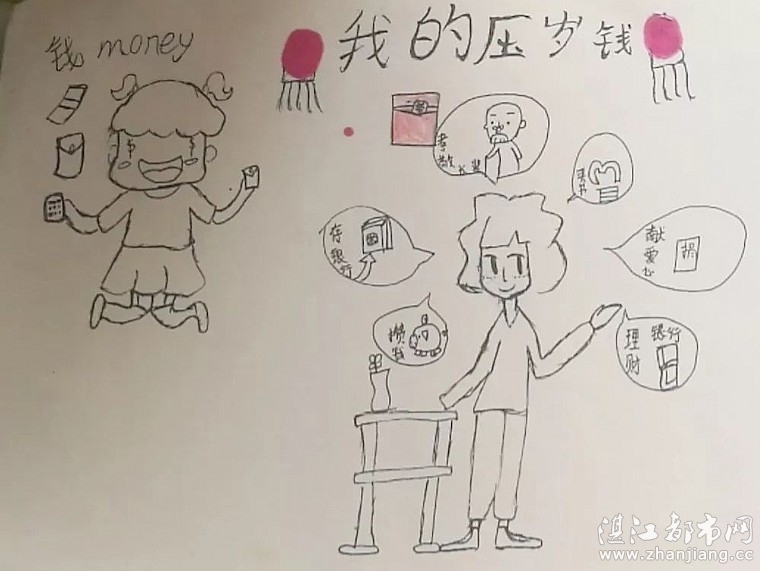 钱 money
我的压岁钱
孝敬长辈
买书
存银行
献爱心
捐
攒钱
理财
银行
湛江都市网
www.zhanjiang.cc